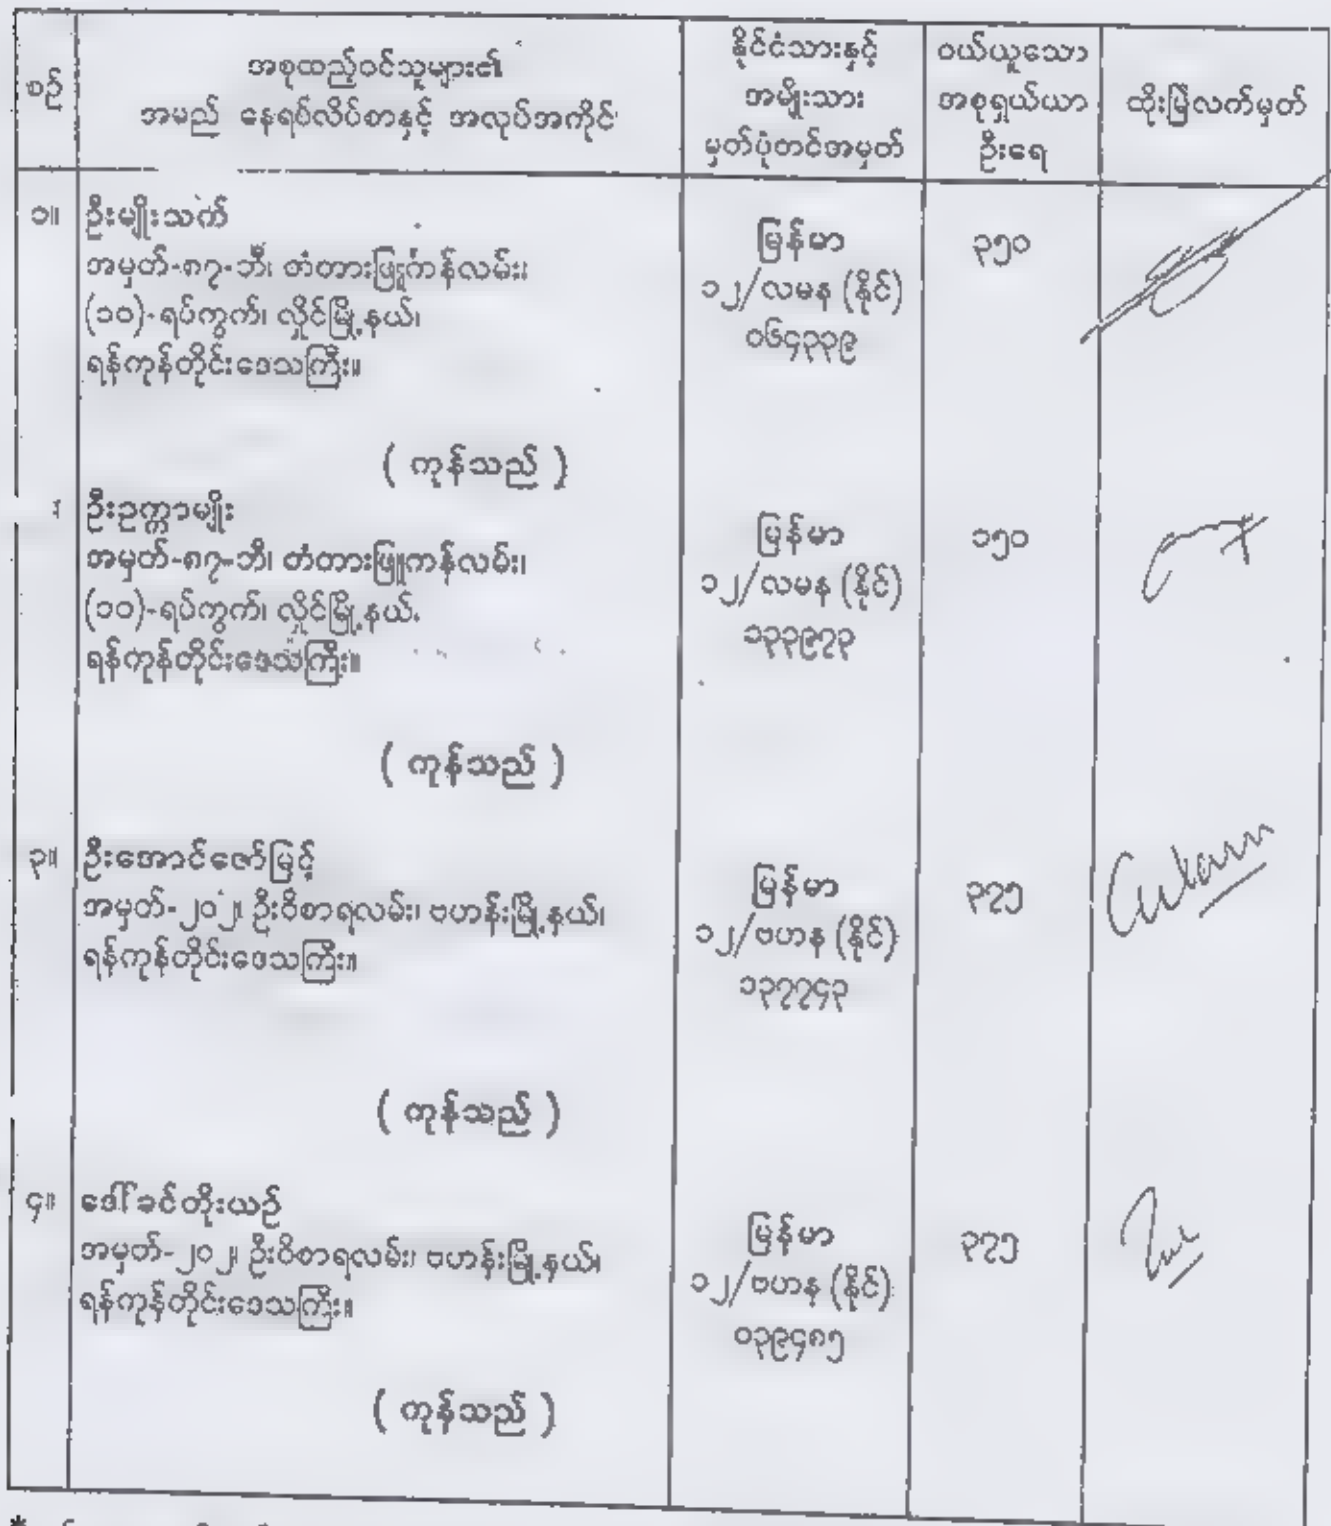 စဉ်
အစုထည့်ဝင်သူများ၏
အမည် နေရပ်လိပ်စာနှင့် အလုပ်အကိုင်
နိုင်ငံသားနှင့်
အမျိုးသား
မှတ်ပုံတင်အမှတ်
ဝယ်ယူသော
အစုရှယ်ယာ
ဦးရေ
ထိုးမြဲလက်မှတ်
၁။ ဦးမျိုးသက်
အမှတ်-၈၇-ဘီ၊ တံတားဖြူကန်လမ်း၊
(၁၀)-ရပ်ကွက်၊ လှိုင်မြို့နယ်၊
ရန်ကုန်တိုင်းဒေသကြီး။
( ကုန်သည် )
မြန်မာ
၁၂/လမန (နိုင်)
၀၆၄၃၃၉
၃၅၀
ဦးဥက္ကာမျိုး
အမှတ်-၈၇-ဘီ၊ တံတားဖြူကန်လမ်း၊
(၁၀)-ရပ်ကွက်၊ လှိုင်မြို့နယ်၊
ရန်ကုန်တိုင်းဒေသကြီး။
( ကုန်သည် )
မြန်မာ
၁၂/လမန (နိုင်)
၁၃၃၉၇၃
၁၅၀
၃။ ဦးအောင်ဇော်မြင့်
အမှတ်-၂၀၂၊ ဦးဝိစာရလမ်း၊ ဗဟန်းမြို့နယ်၊
ရန်ကုန်တိုင်းဒေသကြီး။
( ကုန်သည် )
မြန်မာ
၁၂/ဗဟန (နိုင်)
၁၃၇၇၄၃
၃၇၅
၄။ ဒေါ်ခင်တိုးယဉ်
အမှတ်-၂၀၂၊ ဦးဝိစာရလမ်း၊ ဗဟန်းမြို့နယ်၊
ရန်ကုန်တိုင်းဒေသကြီး။
( ကုန်သည် )
မြန်မာ
၁၂/ဗဟန (နိုင်)
၀၃၉၄၈၅
၃၇၅